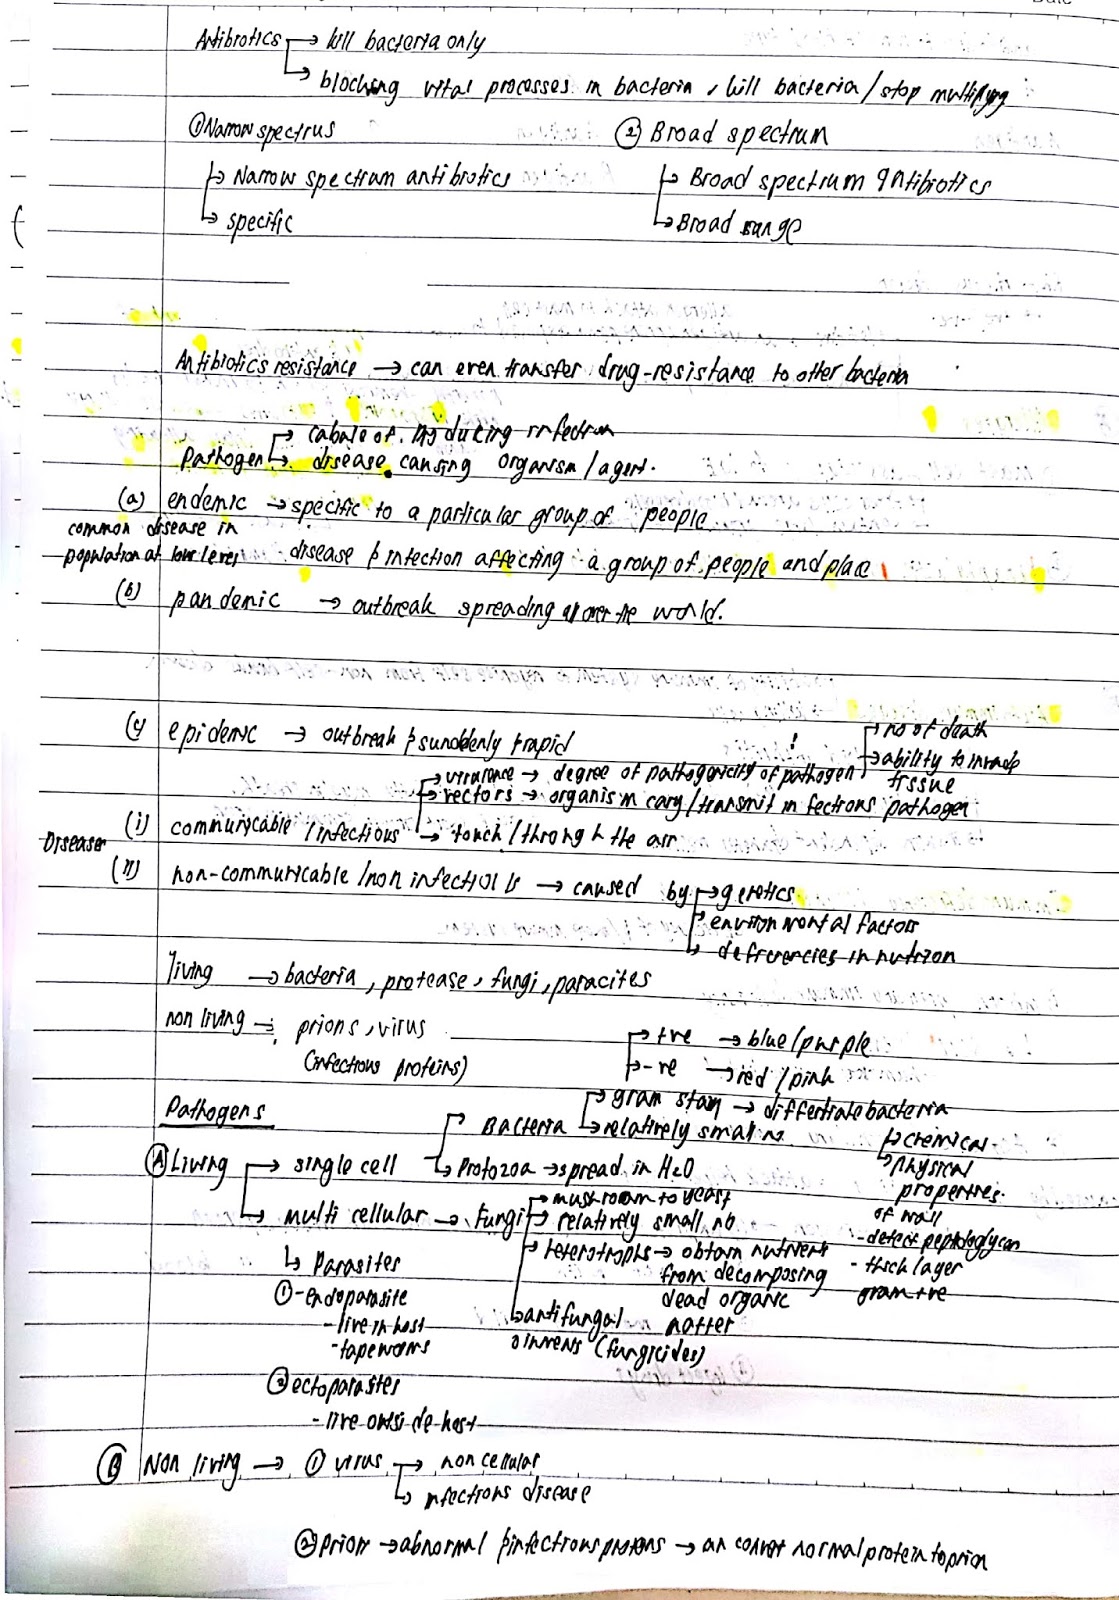 Antibiotics → kill bacteria only
→ blocking vital processes in bacteria, kill bacteria / stop multiplying
① Narrow spectrus ② Broad spectrum
→ Narrow spectrum antibiotics → Broad spectrum antibiotics
→ specific → Broad range
Antibiotics resistance → can even transfer drug-resistance to other bacteria
→ cabale of producing infection
Pathogen → disease causing organism / agent.
(a) endemic → specific to a particular group of people
common disease in
population at low level disease & infection affecting a group of people and place
(b) pandemic → outbreak spreading all over the world.
(c) epidemic → outbreak & sunddenly & rapid → no of death
→ virulence → degree of pathogenicity of pathogen → ability to invade tissue
→ vectors → organism cary / transmit infectious pathogen
Diseases (i) communicable / infectious → touch / through the air
(ii) non-communicable / non infectious → caused by → genetics
→ environmental factors
→ deficiencies in nutrition
living → bacteria, protease, fungi, paracites
non living → prions, virus → +ve → blue / purple
(infectious proteins) → -ve → red / pink
Pathogens → gram stain → differtiate bacteria
Bacteria → relatively small no. → chemical
Ⓐ Living → single cell → Protozoa → spread in H₂O → physical
properties
→ mushroom to yeast of wall
→ multi cellular → Fungi → relatively small no - detect peptidoglycan
→ Parasites → heterotrophs → obtain nutrient - thick layer
from decomposing gram +ve
① - endoparasite dead organic
- live in host → antifungal matter
- tapeworms oinments (fungicides)
② ectoparasites
- live outside host
Ⓑ Non living → ① virus → non cellular
→ infectious disease
② prion → abnormal & infectious proteins → can convert normal protein to prion